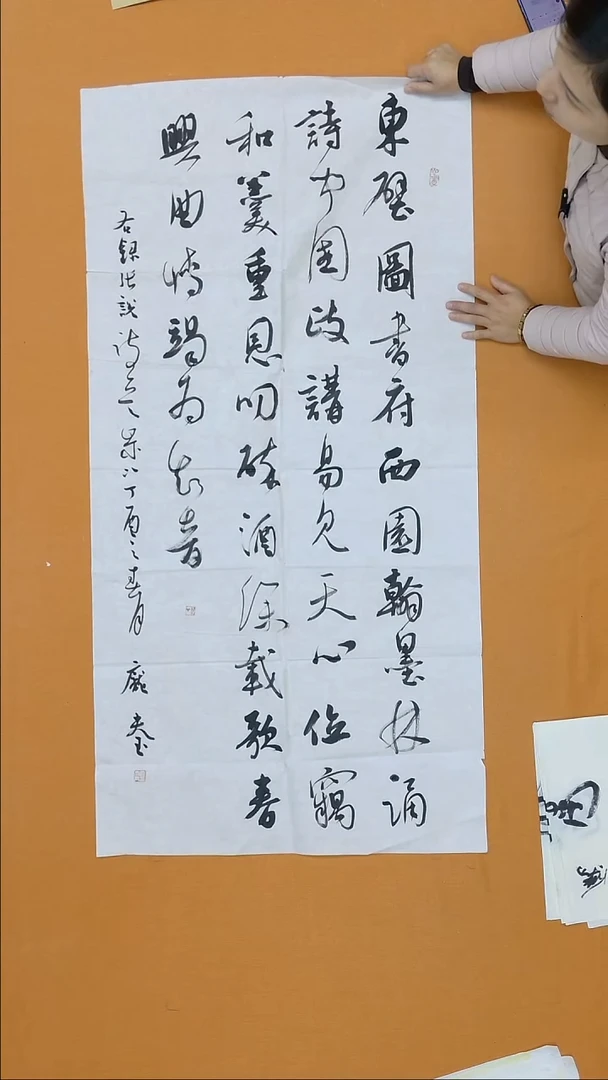 東壁圖書府西園翰墨林誦
詩聞國政講易見天心位竊
和羹重恩叨醉酒深載歌春
興曲情竭為知音
右録張説詩 歲 丁酉之春月 龐